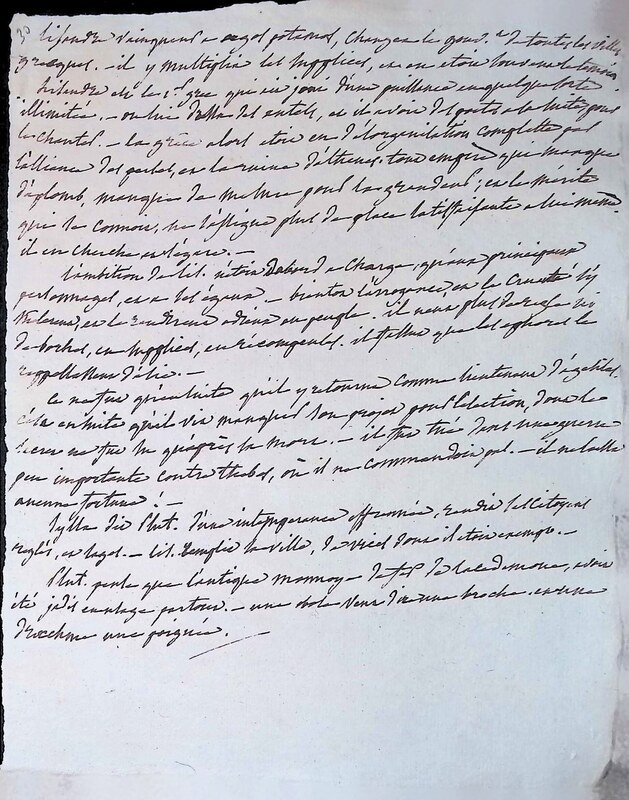 30 Lisandre vainqueur a aegos potamos, changea le gouv.t de toutes les villes
grecques. - il y multiplia les supplices, et en etoit souvent le temoin
Lisandre est le 1.er grec qui eut joui d'une puissance en quelque sorte
illimitée. - on lui dressa des autels, et il avoit des poetes a sa suite pour
le chanter. - la grèce alors etoit en desorganisation complette par
l'alliance des perses, et la ruine d'athenes. tout empire qui manque
d'aplomb, manque de mesure pour la grandeur ; et le mérite
qui se connoit, ne s'assigne plus de place satisfaisante a lui même
il en cherche et s'égare. -
l'ambition de Lis. n'etoit d'abord a charge, qu'aux principaux
personnages, et a ses égaux. - bientot l'arrogance, et la cruauté s'y
mêlerent, et le rendirent odieux au peuple. il n'eut plus de regle ni
de bornes, en supplices, en recompenses. il fallut que les ephores le
rappellassent d'asie. -
Ce ne fut qu'ensuite qu'il y retourna comme lieutenant d'agesilas.
et ensuite qu'il vit manquer son projet pour l'election, dont le
secret ne fut su qu'après sa mort. - il fut tué dans une guerre
peu importante contre thebes, où il ne commandoit pas. - il ne laissa
aucune fortune ! -
Sylla dit Plut. d'une intemperance effrenée, rendit ses citoyens
reglés, et sages. - Lis. remplit sa ville, de vices dont il etoit exempt. -
Plut. pense que l'antique monnoye de fer de lacedemone, avoit
été jadis en usage partout. - une obole veut dire une broche. et une
drachme une poignée.